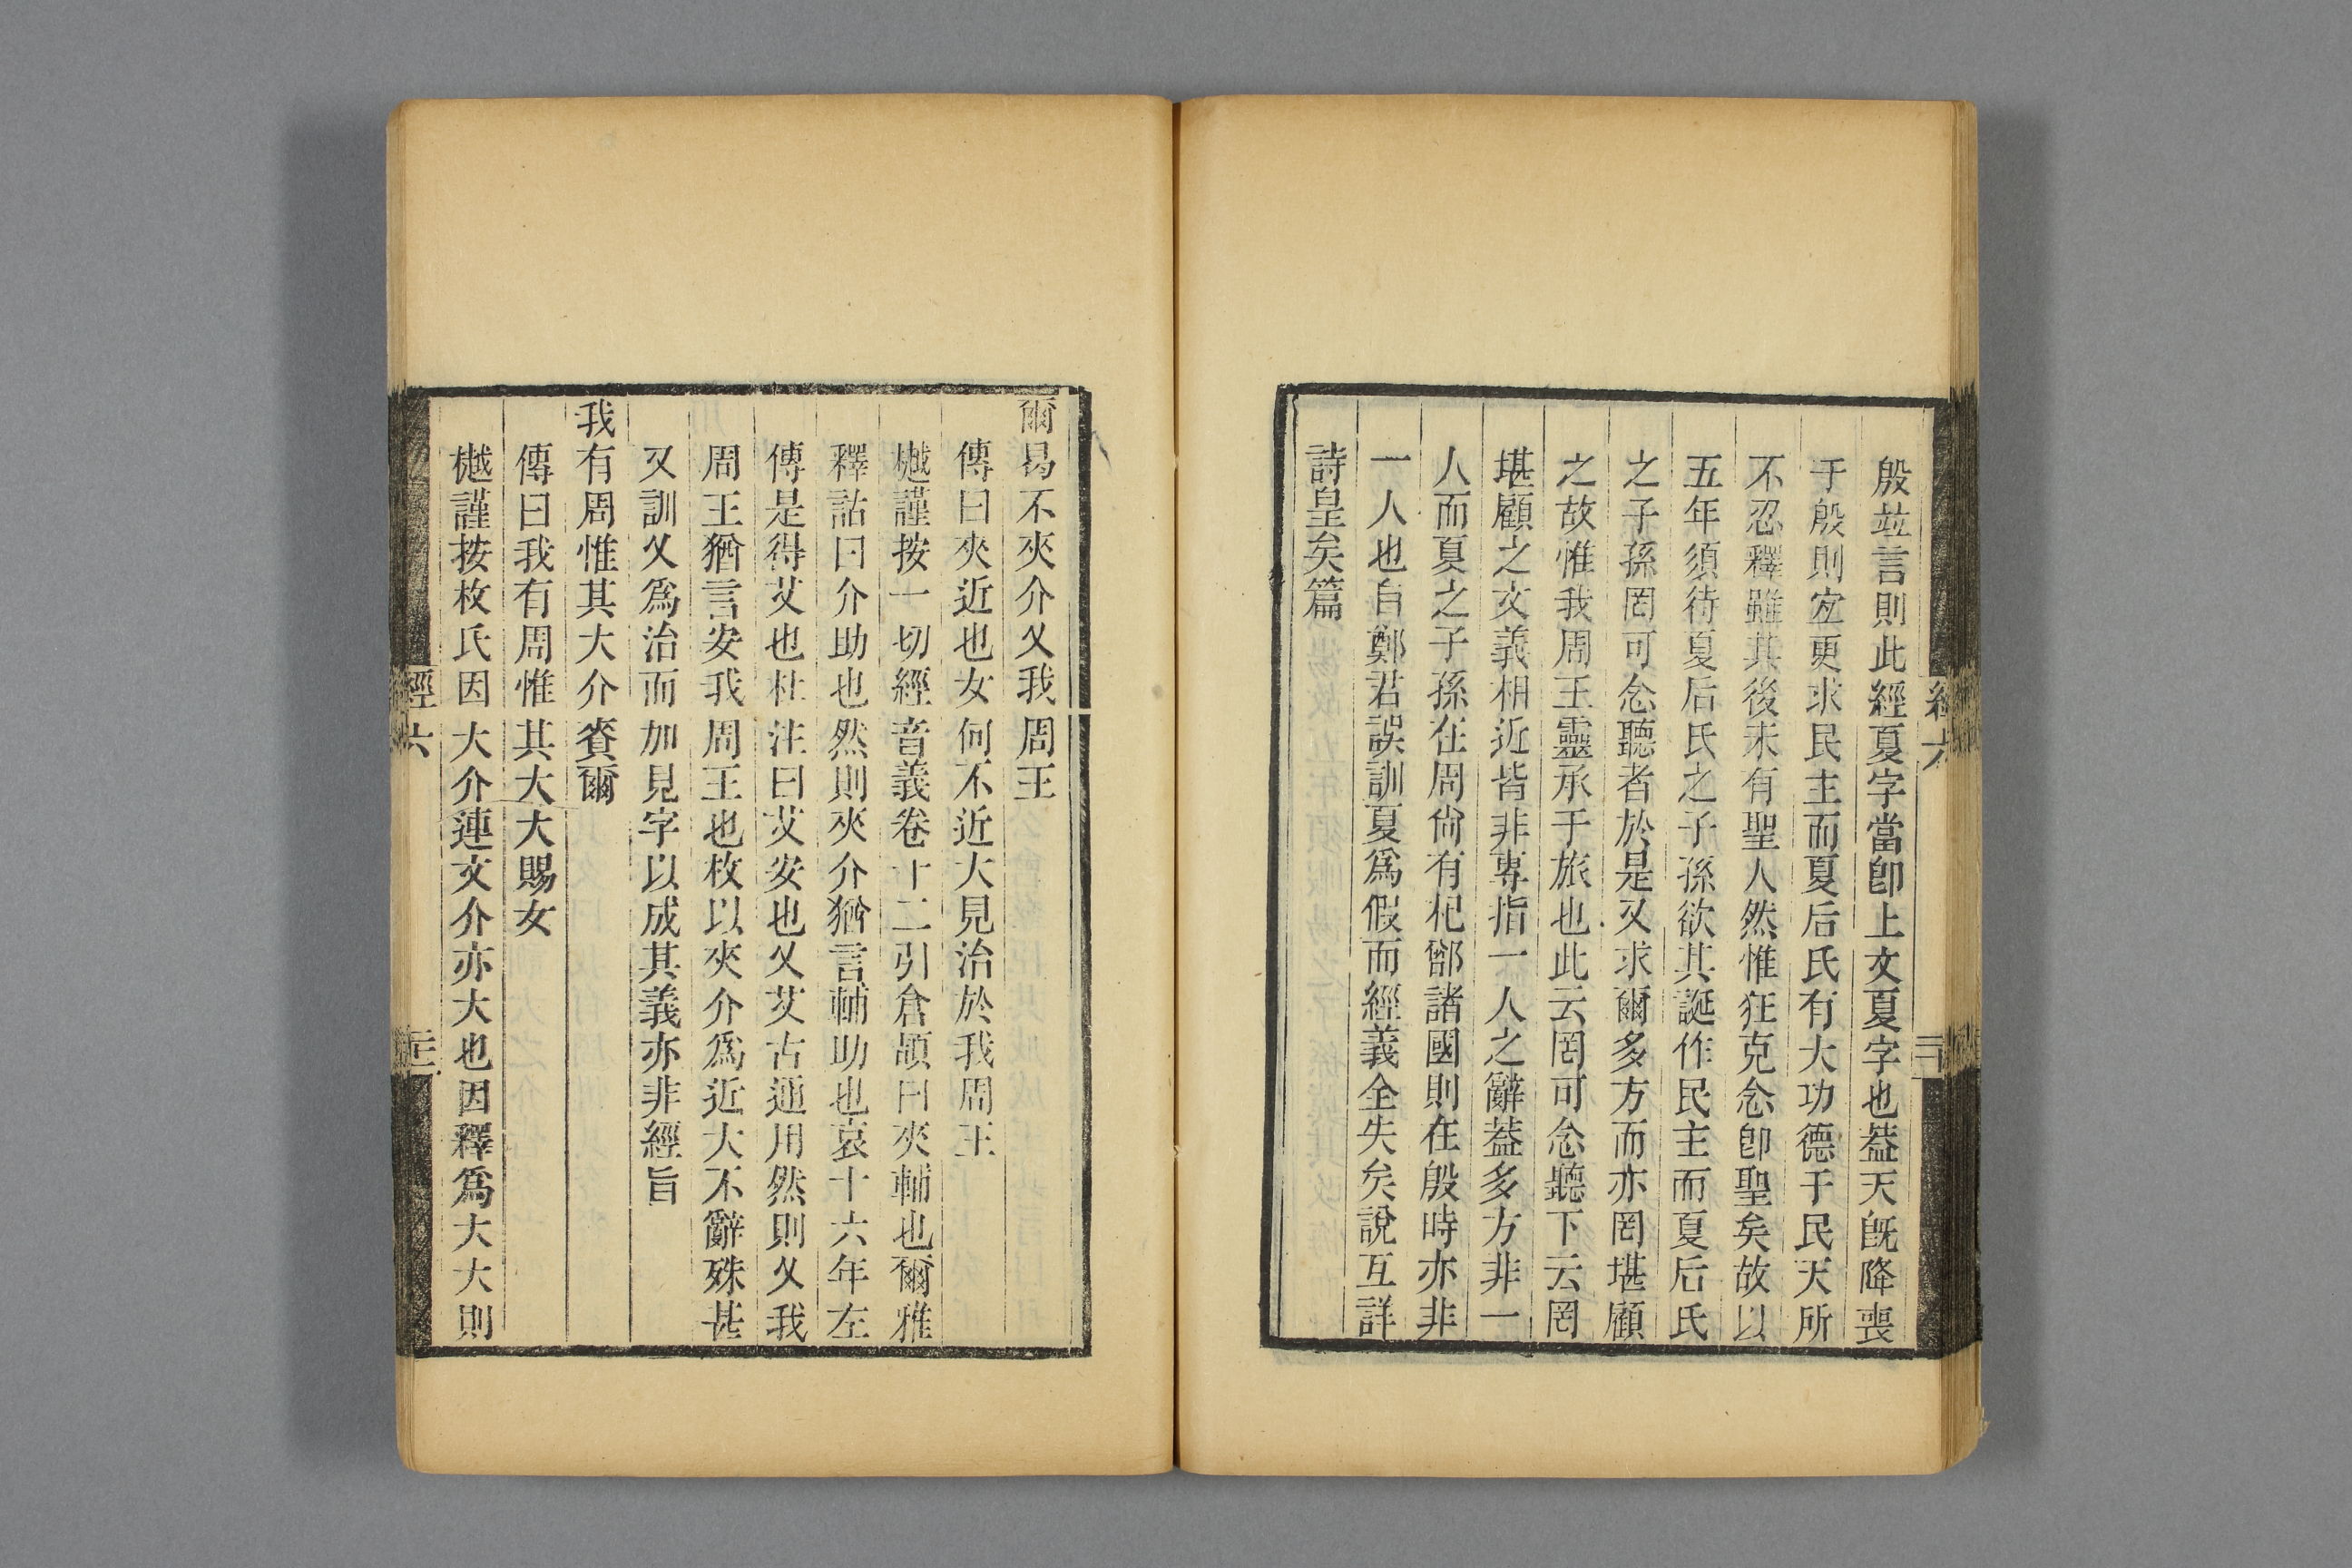 殷竝言則此經夏字當卽上文夏字也葢天旣降喪
于殷則宐更求民主而夏后氏有大功德于民天所
不忍釋雖其後未有聖人然惟狂克念卽聖矣故以
五年須待夏后氏之子孫欲其誕作民主而夏后氏
之子孫罔可念聽者於是又求爾多方而亦罔堪顧
之故惟我周王靈承于旅也此云罔可念聽下云罔
堪顧之文義相近皆非專指一人之辭葢多方非一
人而夏之子孫在周尙有杞鄫諸國則在殷時亦非
一人也自鄭君誤訓夏爲假而經義全失矣說互詳
詩皇矣篇
爾曷不夾介乂我周王
傳曰夾近也女何不近大見治於我周王
樾謹按一切經音義卷十二引倉頡曰夾輔也爾雅
釋詁曰介助也然則夾介猶言輔助也哀十六年左
傳是得艾也杜注曰艾安也乂艾古通用然則乂我
周王猶言安我周王也枚以夾介爲近大不辭殊甚
又訓乂爲治而加見字以成其義亦非經旨
我有周惟其大介賚爾
傳曰我有周惟其大大賜女
樾謹按枚氏因大介連文介亦大也因釋爲大大則
經六